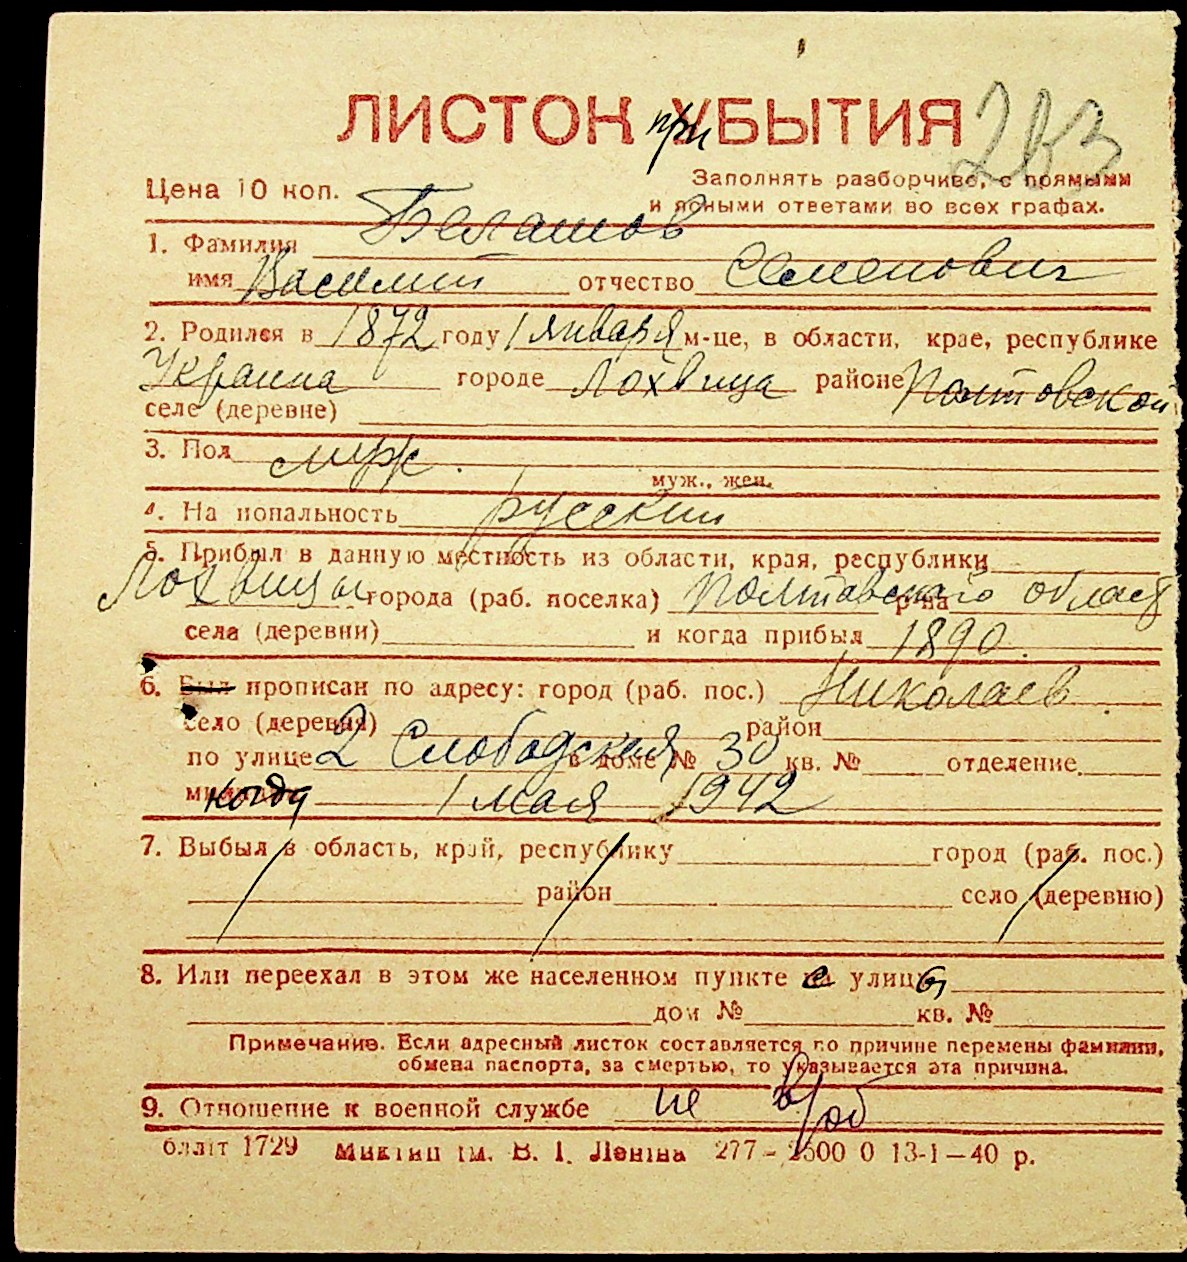 ЛИСТОК при УБЫТИЯ 283
Цена 10 коп. Заполнять разборчиво, с прямыми
и ясными ответами во всех графах.
1. Фамилия Балашов
имя Василий отчество Семенович
2. Родился в 1872 году 1 января м-це, в области, крае, республике
Украина городе Лохвица районе Полтовской
селе (деревне)
3. Пол муж.
муж., жен.
4. На иопальность русский
5. Прибыл в данную местность из области, края, республики
Лохвицы города (раб. поселка) Полтавского р-на област
села (деревни) и когда прибыл 1890.
6. Был прописан по адресу: город (раб. пос.) Николаев.
село (деревня) район
по улице 2 Слободская в доме № 30 кв. № отделение
когда 1 мая 1942
7. Выбыл в область, край, республику город (раб. пос.)
район село (деревню)
8. Или переехал в этом же населенном пункте с улицы
дом № кв. №
Примечание. Если адресный листок составляется по причине перемены фамилии,
обмена паспорта, за смертью, то указывается эта причина.
9. Отношение к военной службе не в/об
обліт 1729 ім. В. І. Леніна 277 – 2500 0 13-1–40 р.